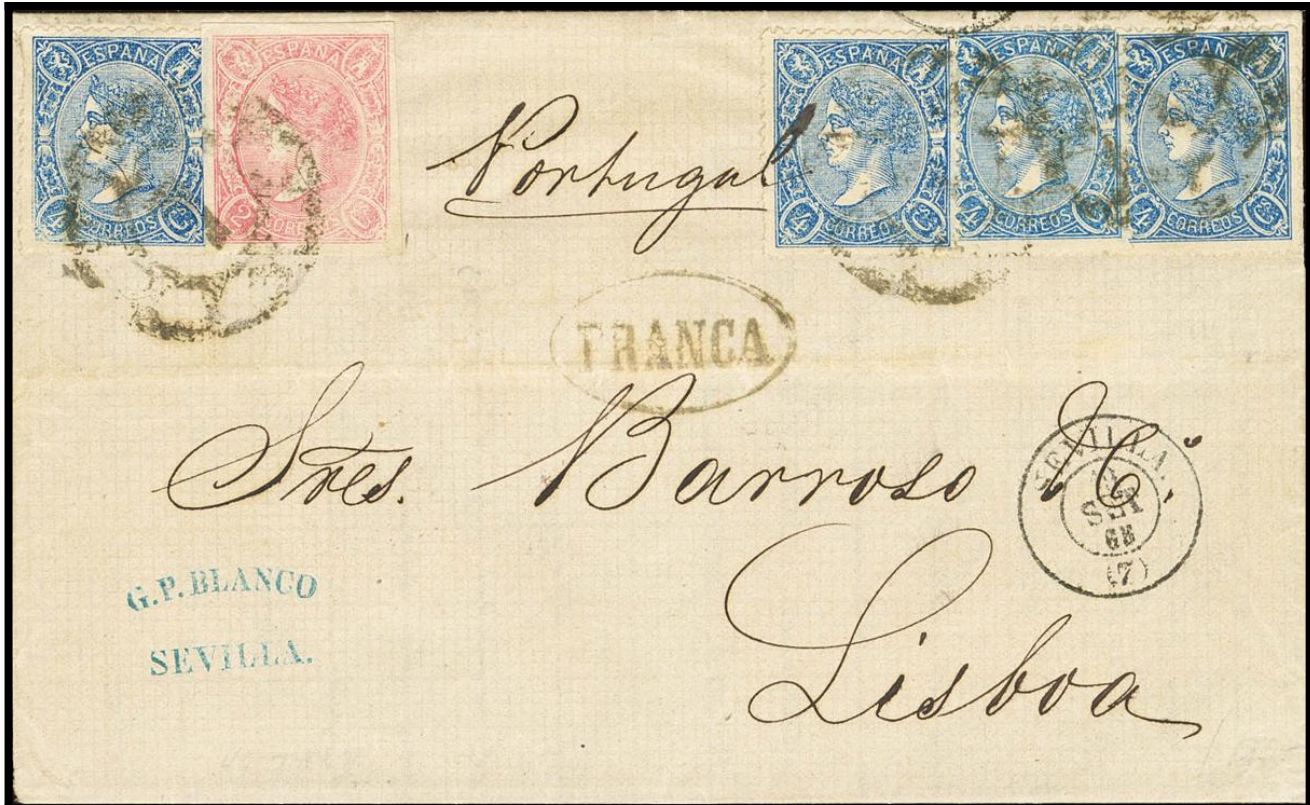 ESPAÑA
CORREOS
ESPAÑA
2
ESPAÑA
4 CORREOS
ESPAÑA
4 CORREOS
ESPAÑA
4 CORREOS
Portugal
FRANCA
Sres. Barroso
SEVILLA.
SET
(7)
G.P. BLANCO
SEVILLA.
Lisboa